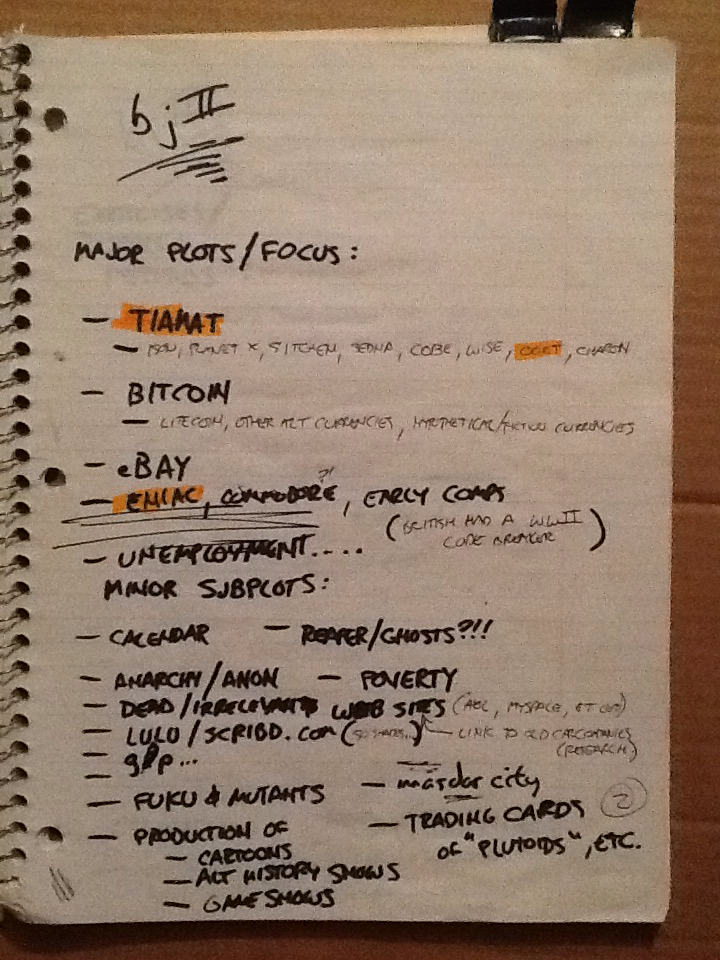 bj II
MAJOR PLOTS/FOCUS:
— TIAMAT
— ISON, PLANET X, SITCHEN, SEDNA, COBE, WISE, OORT, CHARON
— BITCOIN
— LITECOIN, OTHER ALT CURRENCIES, HYPOTHETICAL/FICTION CURRENCIES
— eBAY
— ENIAC, COMMODORE?!, EARLY COMPS
(BRITISH HAD A WWII CODE BREAKER)
— UNEMPLOYMENT....
MINOR SUBPLOTS:
— CALENDAR — REAPER/GHOSTS?!!
— ANARCHY/ANON — POVERTY
— DEAD/IRRELEVANT WEB SITES (AOL, MYSPACE, ET CET)
— LULU/SCRIBD.COM ← LINK TO OLD CAR COMPANIES (RESEARCH)
— glp...
— FUKU & MUTANTS — masdar city
— PRODUCTION OF — TRADING CARDS OF "PLUTOIDS", ETC.
— CARTOONS
— ALT HISTORY SHOWS
— GAME SHOWS
2